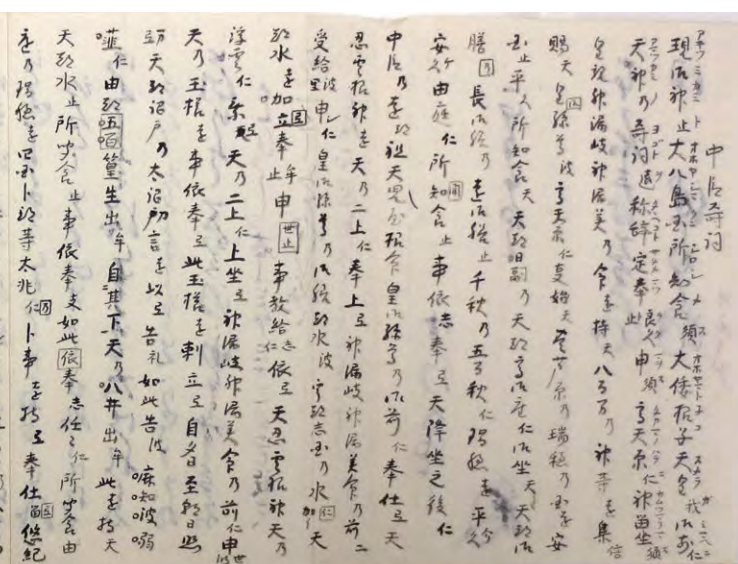 中臣寿詞
現御神止大八島国所知食須大倭根子天皇我御前仁
天神乃寿詞遠称辞定奉良久止申須高天原仁神留坐須
皇親神漏岐神漏美乃命遠持天八百万乃神等遠集信
賜天皇孫尊波高天原仁事始天豊葦原乃瑞穂乃国遠安
国止平久所知食天天都日嗣乃天都高御座仁御坐天天都御
膳乃長御膳乃遠御膳止千秋乃五百秋仁瑞穂遠平介久
安介久由庭仁所知食止事依志奉弖天降坐之後仁
中臣乃遠都祖天児屋根命皇御孫尊乃御前仁奉仕弖天
忍雲根神遠天乃二上仁奉上弖神漏岐神漏美命乃前二
受給波里申仁皇御孫尊乃御膳都水波宇都志国乃水仁加天
都水遠加立奉牟止申世止事教給志仁依弖天忍雲根神天乃
浮雲仁乗弖天乃二上仁上坐弖神漏岐神漏美命乃前仁申世波
天乃玉櫛遠事依奉弖此玉櫛遠刺立弖自夕日至朝日照
万天都詔戸乃太詔刀言遠以弖告礼如此告波麻知波弱
韮仁由都五百篁生出牟自其下天乃八井出牟此遠持天
天都水止所聞食止事依奉支如此依奉志任々仁所聞食由
庭乃瑞穂遠四国卜部等太兆仁乃卜事遠持弖奉仕留悠紀